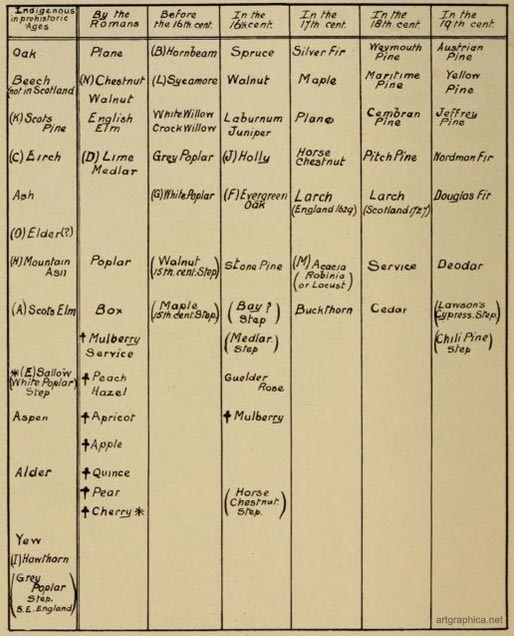 Indigenous
in prehistoric
Ages
Oak
Beech
(not in Scotland
(K) Scots
Pine
(C) Birch
Ash
(O) Elder(?)
(H) Mountain
Ash
(A) Scots Elm
*(E) Sallow
(White Poplar)
Step
Aspen
Alder
Yew
(I) Hawthorn
(Grey
Poplar
Step.
S.E. England)
By the
Romans
Plane
(N) Chestnut
Walnut
English
Elm
(D) Lime
Medlar
Poplar
Box
† Mulberry
Service
† Peach
Hazel
† Apricot
† Apple
† Quince
† Pear
† Cherry *
Before
the 16th. cent.
(B) Hornbeam
(L) Sycamore
White Willow
Crack Willow
Grey Poplar
(G) White Poplar
(Walnut
15th. cent. Step)
(Maple
15th cent. Step)
In the
16th cent.
Spruce
Walnut
Laburnum
Juniper
(J) Holly
(F) Evergreen
Oak
Stone Pine
(Bay ?
Step)
(Medlar.
Step)
Guelder
Rose
† Mulberry
(Horse
Chestnut.
Step.)
In the
17th cent.
Silver Fir
Maple
Plane
Horse
Chestnut
Larch
(England 1629)
(M) Acacia
(Robinia
or Locust)
Buckthorn
In the
18th cent.
Weymouth
Pine
Maritime
Pine
Cembran
Pine
Pitch Pine
Larch
(Scotland 1727)
Service
Cedar
In the
19th cent.
Austrian
Pine
Yellow
Pine
Jeffrey
Pine
Nordman Fir
Douglas Fir
Deodar
(Lawson's
Cypress. Step.)
(Chili Pine)
Step
artgraphica.net